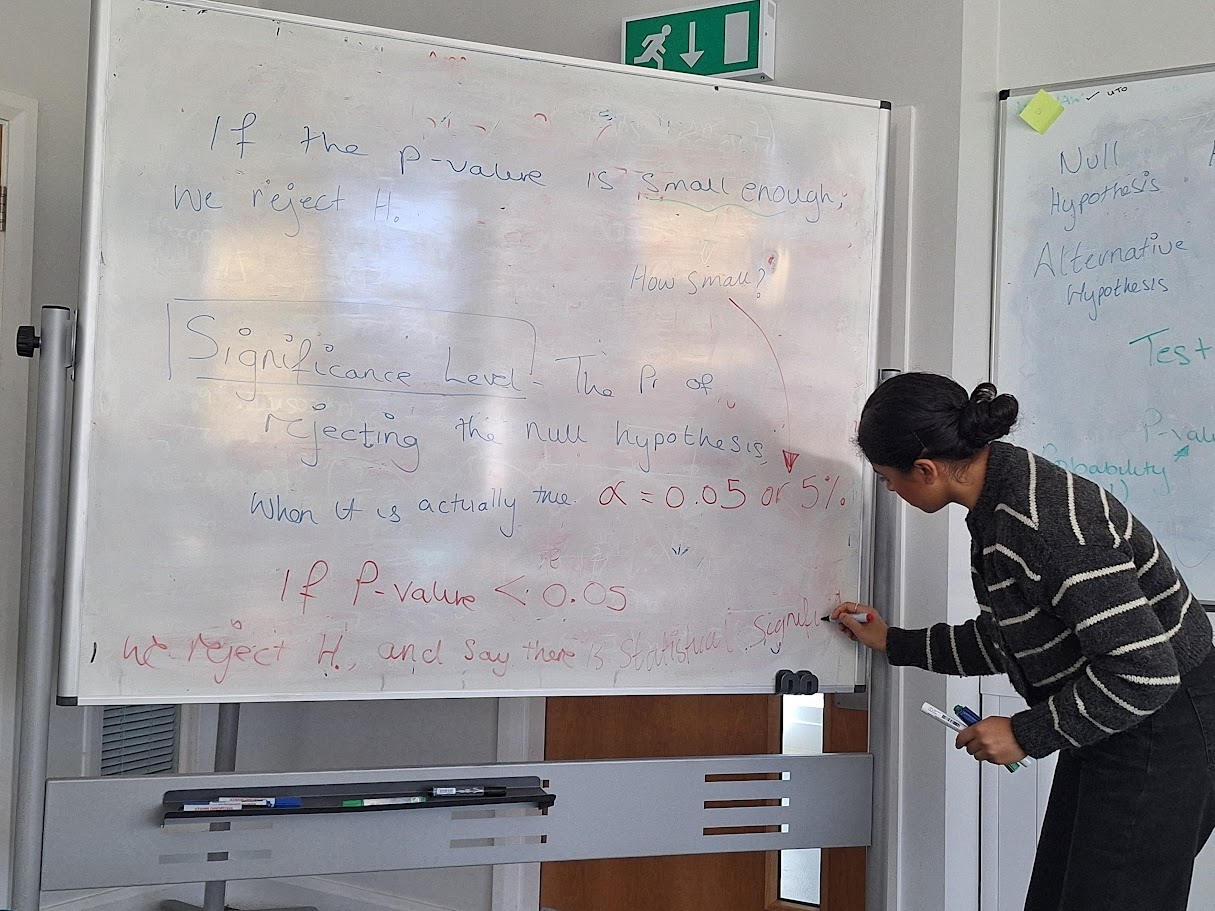 If the p-value is small enough,
we reject H.
How small?
Significance Level - The Pr of
rejecting the null hypothesis,
when it is actually true. α = 0.05 or 5%
If P-value < 0.05
we reject H., and say there is statistical signifi
UTO
Null
Hypothesis
Alternative
Hypothesis
Test
P-valu